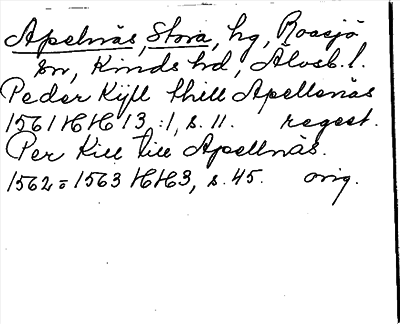 Apelnäs, Stora, hg, Roasjö
sn, Kinds hd, Älvsb. l.
Peder Kijll thill Apellsnäs
1561 HH 13:1, s. 11. regest.
Per Kill till Apellnäs.
1562=1563 HH3, s. 45. orig.